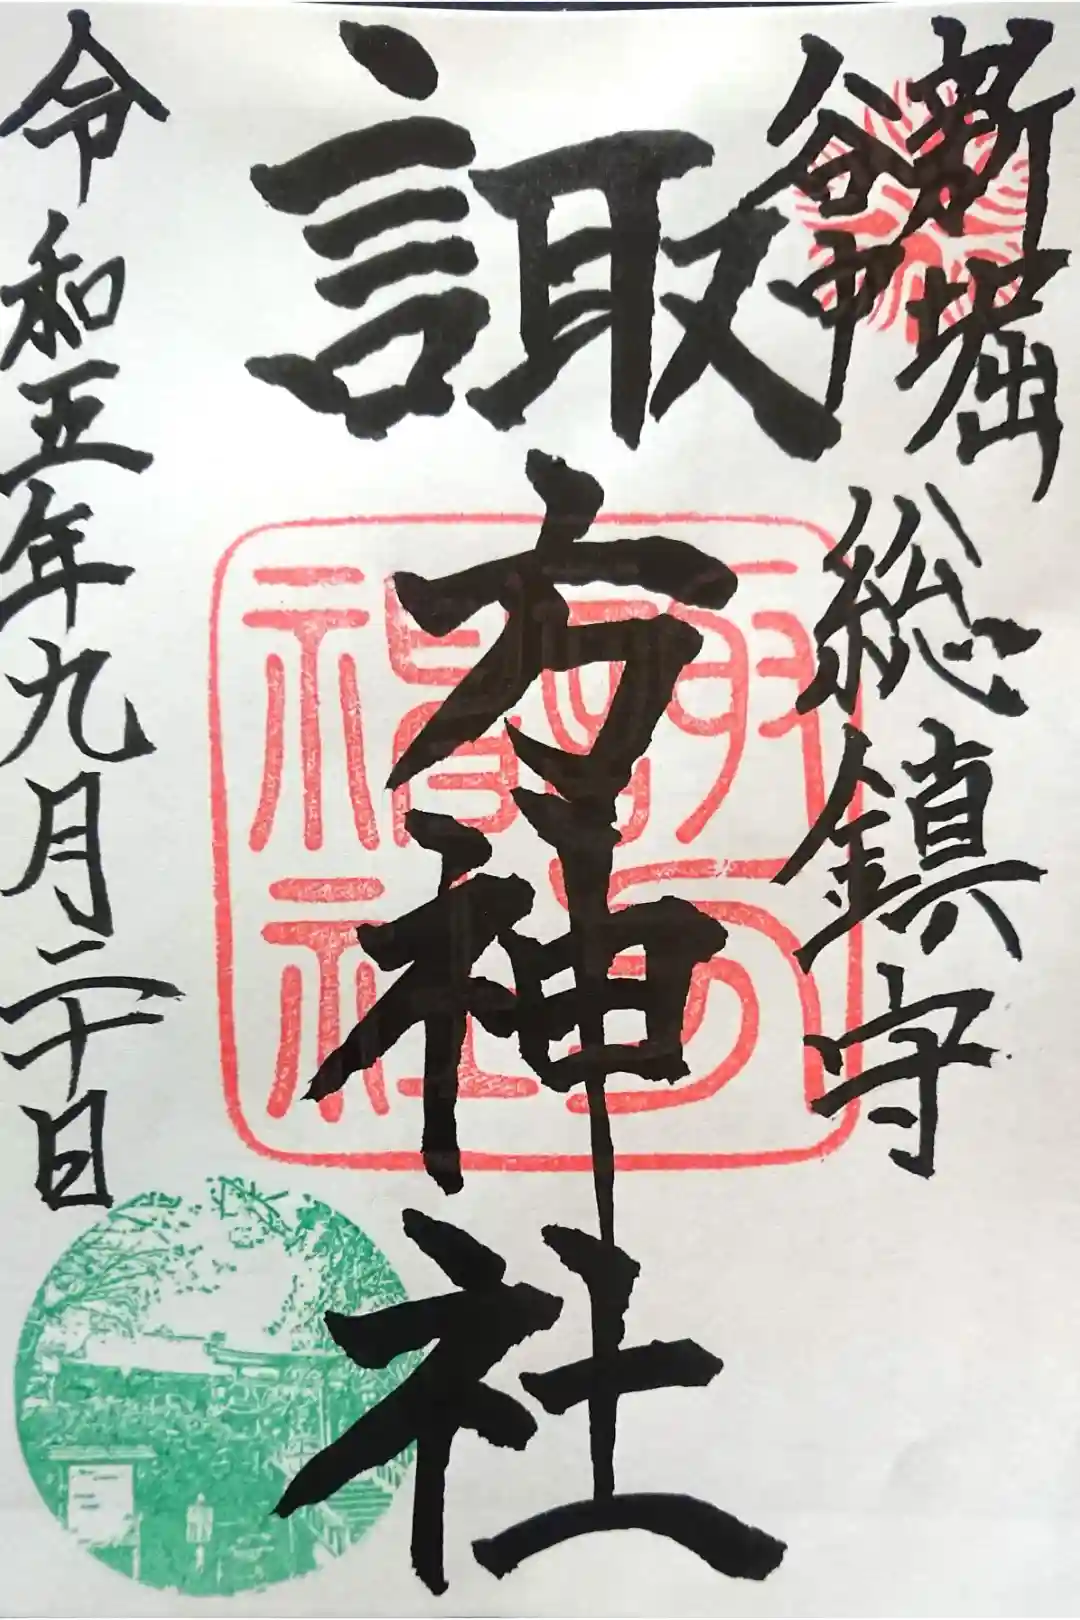 新堀
谷中
総鎮守
諏方神社
令和五年九月二十日